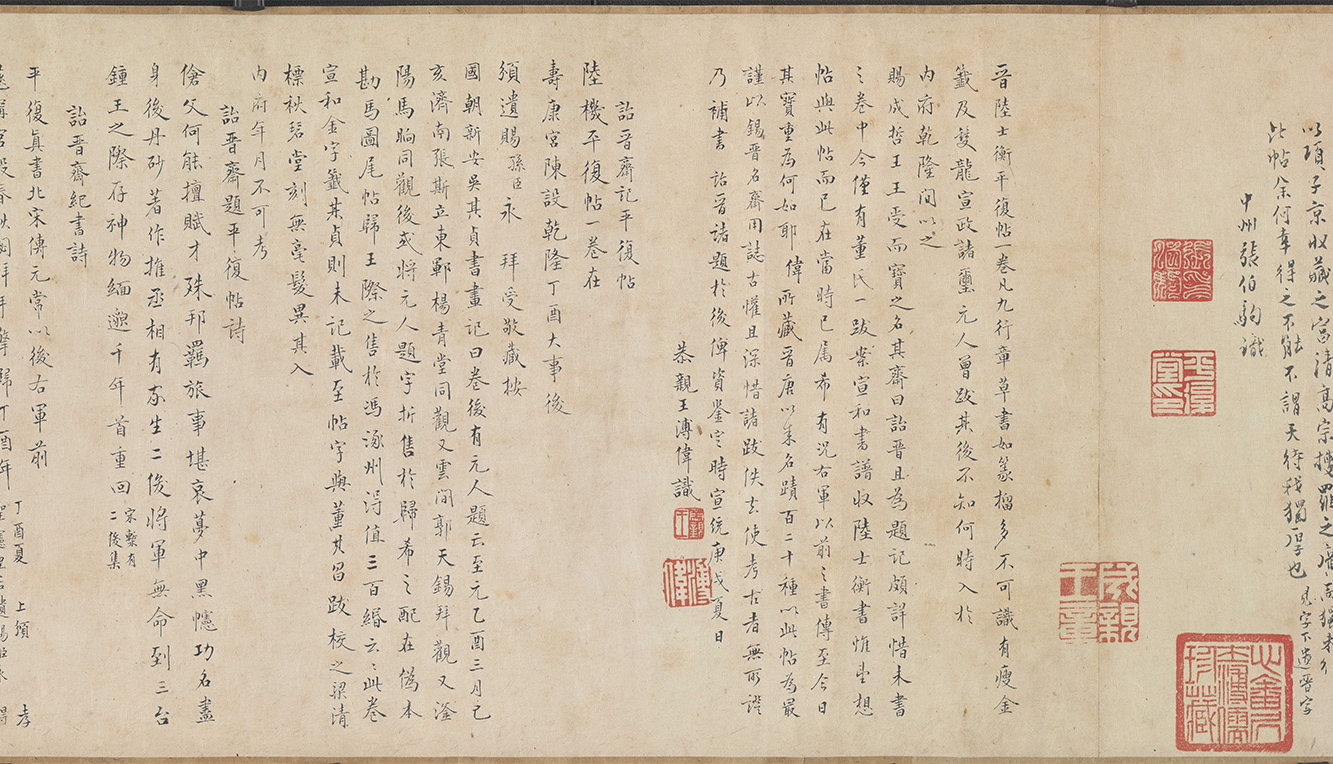 以項子京收藏之富清高宗搜羅之廣
此帖余何幸得之不能不謂天待我獨厚也 見字下遺晉字
中州張伯駒識
晉陸士衡平復帖一卷凡九行章草書如篆籀多不可識有瘦金
籤及雙龍宣政諸璽元人曾跋其後不知何時入於
內府乾隆間以之
賜成哲王王受而寶之名其齋曰詒晉且為題記頗詳惜未書
之卷中今僅有董氏一跋案宣和書譜收陸士衡書惟
帖與此帖而已在當時已屬希有況右軍以前之書傳至今日
其寶重為何如耶偉所藏晉唐以來名蹟百二十種以此帖為最
謹以錫晉名齋用誌古懽且深惜諸跋佚去使考古者無所證
乃補書詒晉諸題於後俾資鑒定時宣統庚戌夏日
恭親王溥偉識
詒晉齋記平復帖
陸機平復帖一卷在
壽康宮陳設乾隆丁酉大事後
頒遺賜孫臣永 拜受敬藏按
國朝新安吳其貞書畫記曰卷後有元人題云至元乙酉三月己
亥濟南張斯立東鄆楊青堂同觀又雲間郭天錫拜觀又滏
陽馬昫同觀後或將元人題字折售於歸希之配在偽本
勘馬圖尾帖歸王際之售於馮涿州得值三百緡云云此卷
宣和金字籤其貞則未記載至帖字與董其昌跋校之梁清
標秋碧堂刻無毫髮異其入
內府年月不可考
詒晉齋題平復帖詩
傖父何能擅賦才殊邦羈旅事堪哀夢中黑幰功名盡
身後丹砂著作推丞相有家生二俊將軍無命到三台
鍾王之際存神物緬邈千年首重回 宋槧有二俊集
詒晉齋紀書詩
平復真書北宋傳元常以後右軍前 丁酉夏 上頒